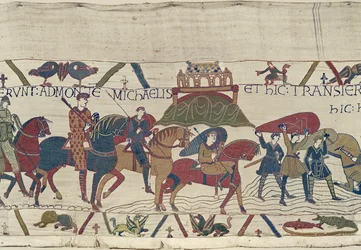 ERVNT: AD MONTE MICHAELIS ET HIC: TRANSIER
HIC: